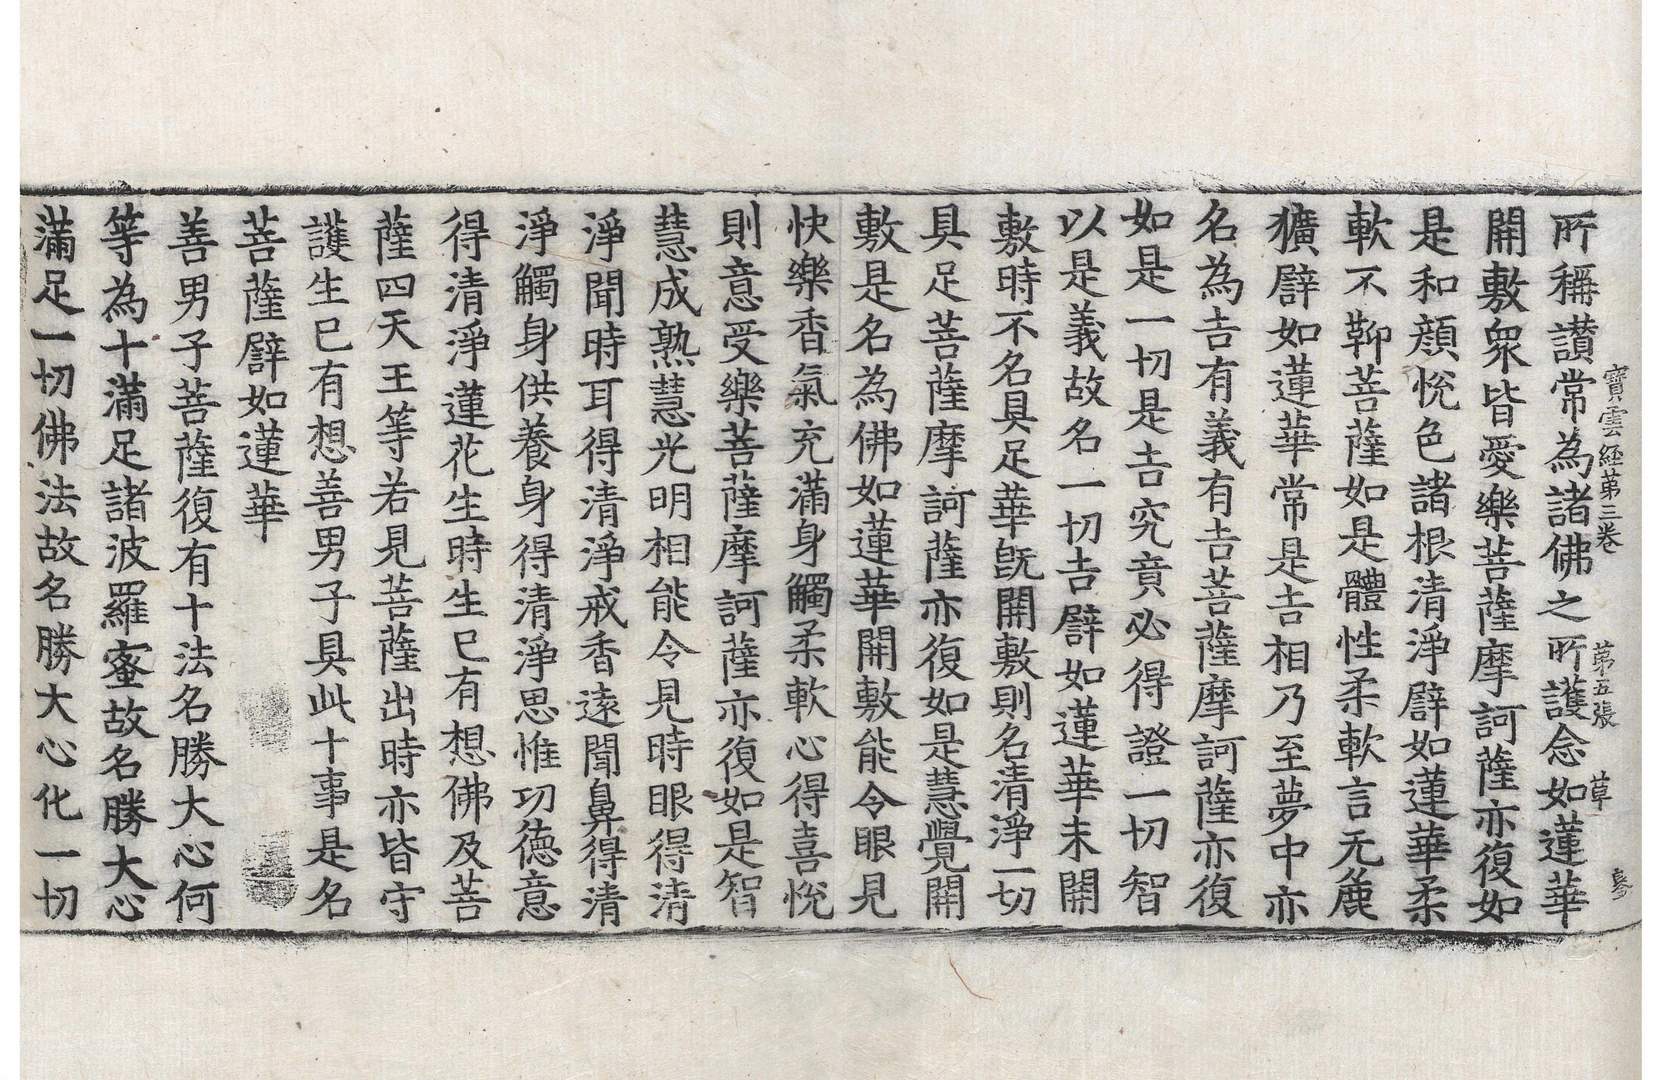 寶雲經第三卷 第五張 草
所稱讃常為諸佛之所護念如蓮華
開敷衆皆愛樂菩薩摩訶薩亦復如
是和顔悅色諸根清淨譬如蓮華柔
軟不鞕菩薩如是體性柔軟言无麁
獷譬如蓮華常是吉相乃至夢中亦
名為吉有義有吉菩薩摩訶薩亦復
如是一切是吉究竟必得證一切智
以是義故名一切吉譬如蓮華未開
敷時不名具足華旣開敷則名清淨一切
具足菩薩摩訶薩亦復如是慧覺開
敷是名為佛如蓮華開敷能令眼見
快樂香氣充滿身觸柔軟心得喜悅
則意受樂菩薩摩訶薩亦復如是智
慧成熟慧光明相能令見時眼得清
淨聞時耳得清淨戒香遠聞鼻得清
淨觸身供養身得清淨思惟功德意
得清淨蓮花生時生已有想佛及菩
薩四天王等若見菩薩出時亦皆守
護生已有想善男子具此十事是名
菩薩譬如蓮華
善男子菩薩復有十法名勝大心何
等為十滿足諸波羅蜜故名勝大心
滿足一切佛法故名勝大心化一切